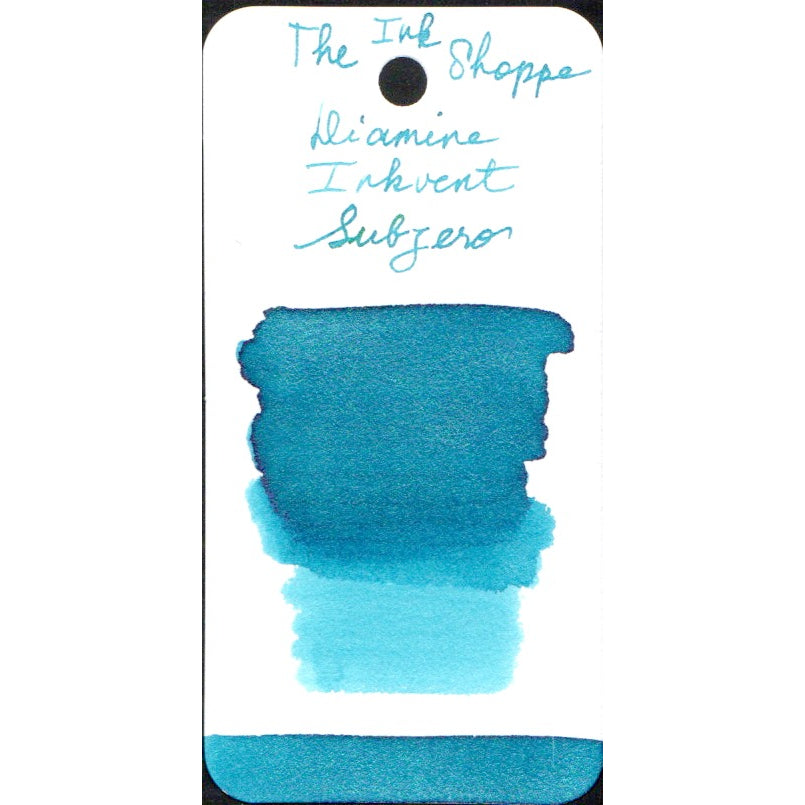 The Ink Shoppe
Diamine
Inkvent
Subzero